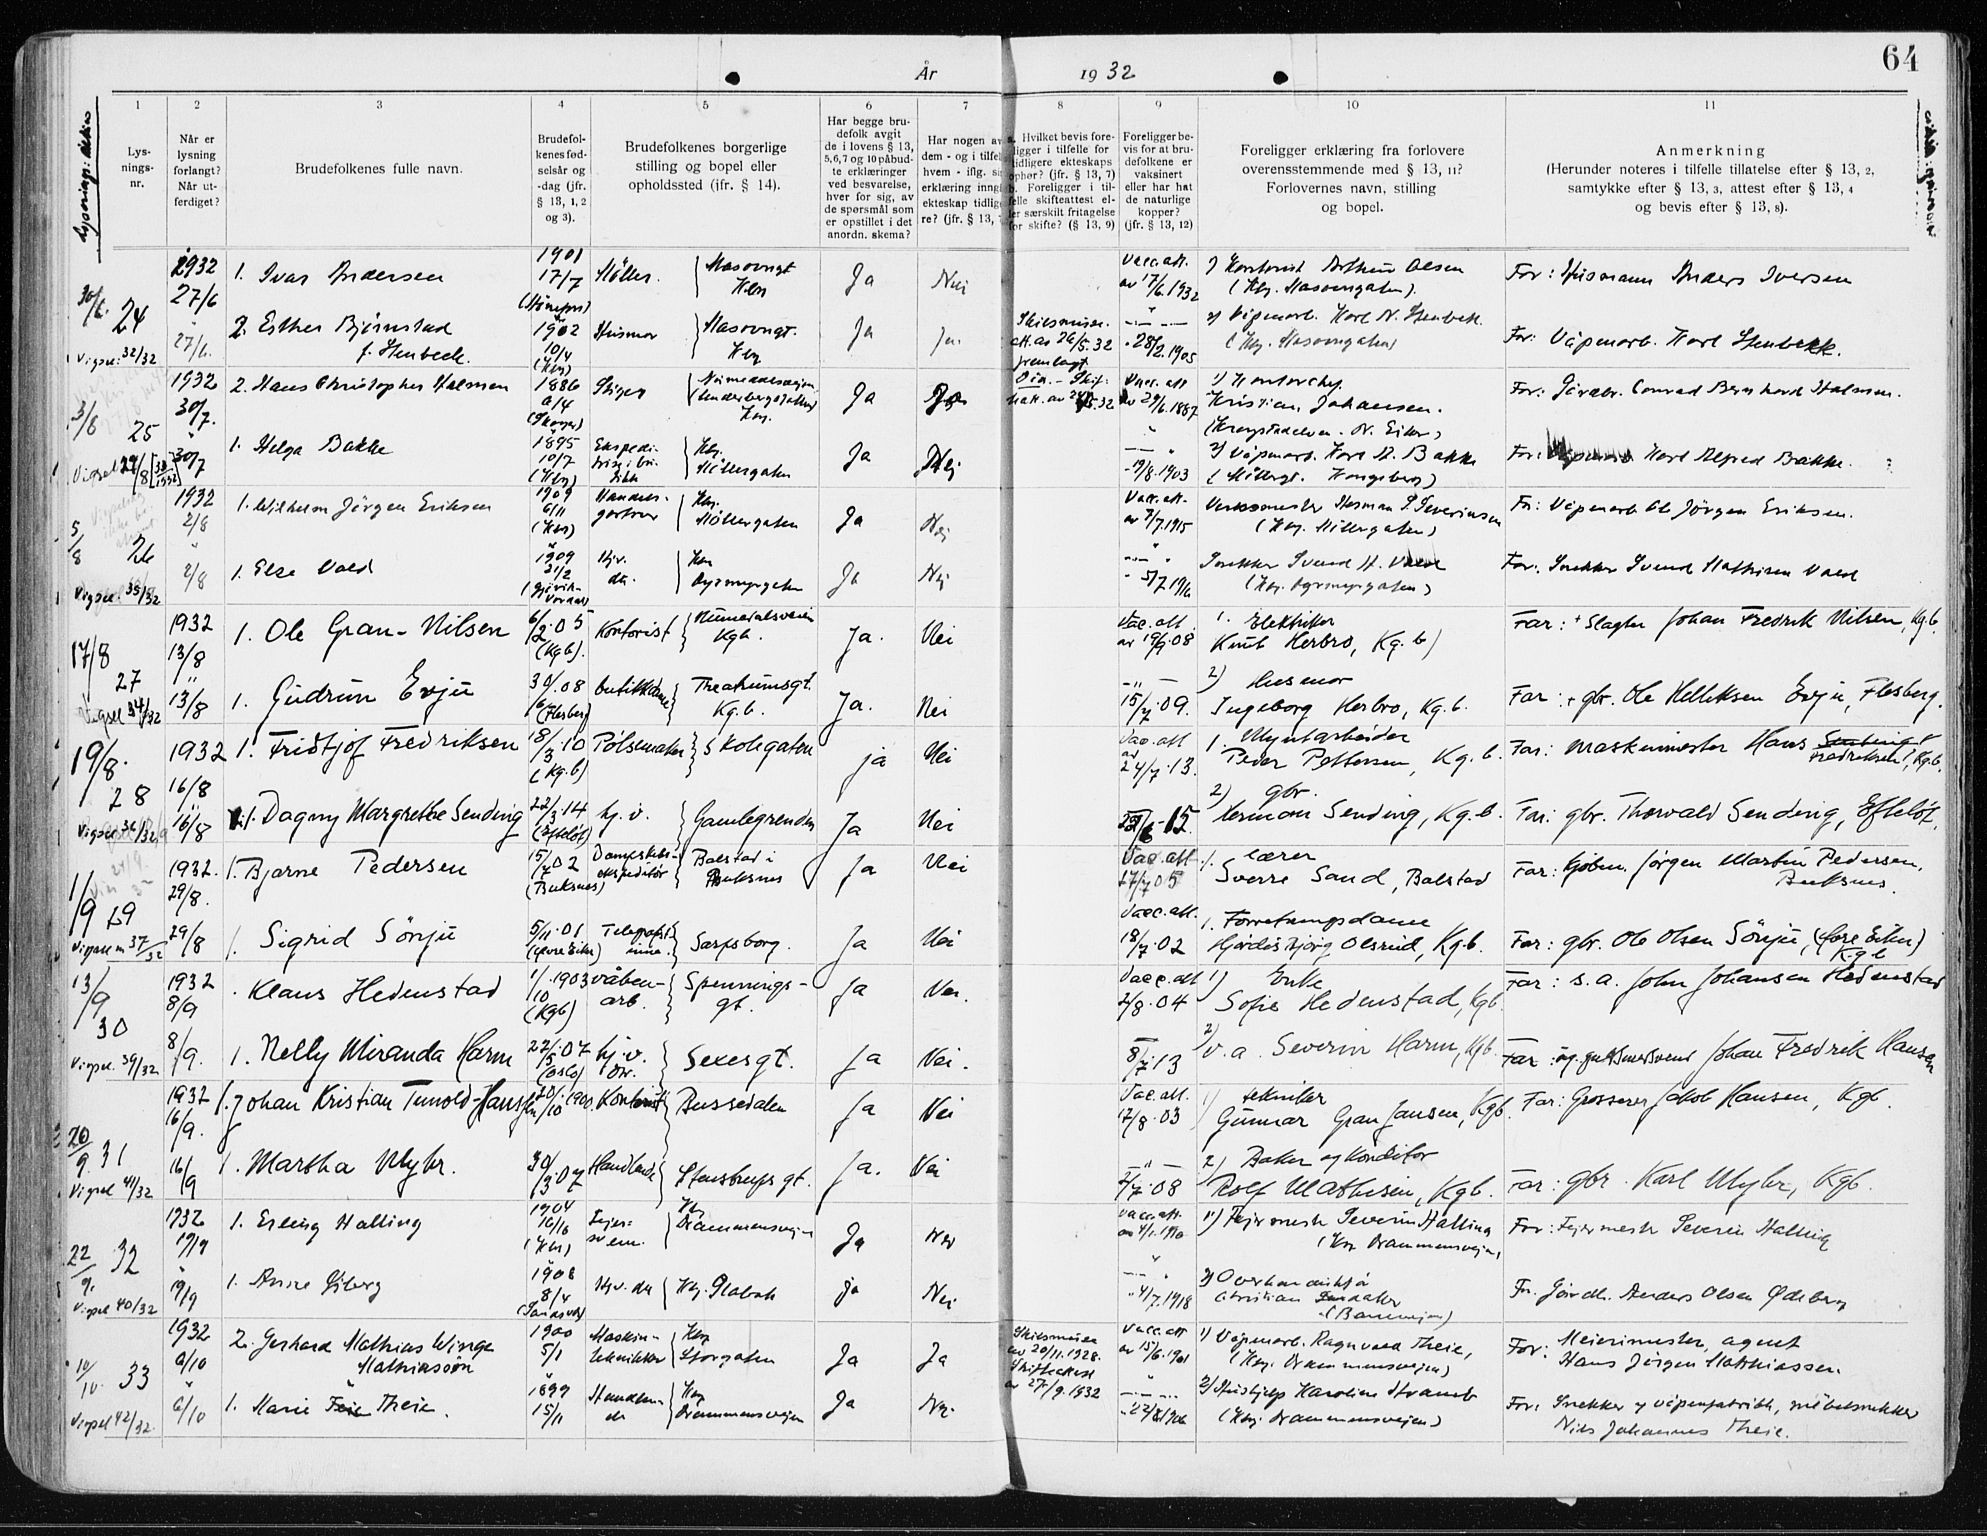 64
År 1932
1
2
3
4
5
6
7
8
9
10
11
Lysnings: Aktiss
Lys-
nings-
nr.
Når er
lysning
forlangt?
Når ut-
ferdiget?
Brudefolkenes fulle navn.
Brudefol-
kenes fød-
selsår og
-dag (jfr.
§ 13, 1, 2
og 3).
Brudefolkenes borgerlige
stilling og bopel eller
opholdssted (jfr. § 14).
Har begge bru-
defolk avgit
de i lovens § 13,
5,6,7 og 10 påbud-
te erklæringer
ved besvarelse,
hver for sig, av
de spørsmål som
er opstillet i det
anordn. skema?
Har nogen av
dem - og i tilfel
hvem - iflg. si
erklæring inngå
ekteskap tidlig
re? (jfr. § 13,
a. Hvilket bevis fore-
ligger i tilfelle for
tidligere ekteskaps
ophør? (jfr. § 13, 7)
b. Foreligger i til-
felle skifteattest el-
ler særskilt fritagelse
for skifte? (§ 13, 9)
Foreligger be-
vis for at bru-
defolkene er
vaksinert
eller har hat
de naturlige
kopper?
(jfr. § 13, 12)
Foreligger erklæring fra forlovere
overensstemmende med § 13, 11?
Forlovernes navn, stilling
og bopel.
Anmerkning
(Herunder noteres i tilfelle tillatelse efter § 13, 2,
samtykke efter § 13, 3, attest efter § 13, 4
og bevis efter § 13, 8).
30/6. 24 1932 27/6 1. Ivar Andersen 1901 17/7 Møller. Hasvngt Kbg Ja Nei Vacc.att. av 17/6.1932 1) Kontorist Arthur Olsen (Kbg. Hasvengaten) Far: Husmann Anders Iversen
Vigsel: 32/32 27/6. 2. Esther Bjørnstad f. Stenbeck. 1902 10/4 (Kbg) Husmor Hasvngt. Kbg Ja Ja. Skilsmisse. att. av 26/5.32 fremlagt 28/2.1905 2) Våpenarb. Karl N. Stenbekk. (Kbg. Hasvengaten) Far: Våpenarb. Karl Stenbekk.
3/8 25 1932 30/7. 2. Hans Christopher Halmen 1886 6/4 Numedalsveien Kbg. Ja Ja Vacc.att av 29/6.1887 1) Kontorchef. Kristian Johansen. (Krogstadelven. N. Eiker) Far: Gårdbr. Conrad Bernhard Halmen.
Vigsel 29/8 30/7 1. Helga Bakke 1895 10/7 (Kbg) Ekspedi- trise i bu- tikk Kbg. Møllergaten Ja Nej 19/8.1903 2) Våpenarb. Karl A. Bakke (Møllergt. Kongsberg) Far: Karl Alfred Bakke.
5/8 26 1932 2/8 1. Wilhelm Jörgen Eriksen 1909 6/11 (Kbg) Handels- gartner Kbg. Møllergaten Ja Nej Vacc.att. av 7/7.1915 Verksmester Herman P. Severinsen (Kbg. Møllergaten) Far: Våpenarb. Ole Jörgen Eriksen.
Vigsel. 35/32 2/8 1. Else Vold 1909 21/2 Hjv. dtr. Kbg Dyrmyrgaten Ja Nej 5/7.1916 Snekker Svend H. Vold (Kbg. Dyrmyrgaten) Far: Snekker Svend Mathisen Vold
17/8 27 1932 13/8 1. Ole Gran-Nilsen 6/2.05 (Kgb). Kontorist Numedalsveien Kgb. Ja. Nei Vac.att. av 19/9.08 1. Elektriker Knut Herbro, Kg.b) Far: + Slagter Johan Fredrik Nilsen, Kg.b.
Vigsel 34/32 13/8 1. Gudrun Evju 30/6.08 (Flesberg) butikkdame Theatrumsgt. Kg.b. Ja. Nei 15/7.09. 2) Husmor Ingeborg Herbro, Kg.b. Far: + gbr. Ole Helleksen Evju, Flesberg.
19/8. 28 1932 16/8 1. Fridtjof Fredriksen 18/3.10 (Kg.b) Pølsemaker Skolegaten ja Nei Vac.att av 24/7.13. 1. Myntarbeider Peder Pettersen, Kg.b. Far: maskinmester Hans Sending Fredriksen, Kg.b.
Vigsel 36/32 16/8 1. Dagny Margrethe Sending 22/3.14 (Efteløt) hj.v. Gamlegrenden Ja Nei 15. 2) gbr. Herman Sending, Kg.b. Far: gbr. Thorvald Sending, Efteløt.
1/9 29 1932. 29/8. 1. Bjarne Pedersen 15/7.02 (Buksnes) Dampskibs- ekspeditør Balstad i Buksnes Ja Nei Vac.att 27/7.05 1. lærer Sverre Sand, Balstad Far: Kjøbm. Jørgen Martin Pedersen, Buksnes.
Vigsel n 37/32 29/8 1. Sigrid Sönju 5/11.01 (Øvre Eiker) Telegrafist- inne. Sarpsborg. Ja Nei Vacc.att. 18/7.02 1. Forretningsdame Hjördis Bjørg Olsrud, Kgb. Far: gbr. Ole Olsen Sönju, (Øvre Eiker) Kgb
13/9 30 1932 8/9 . Klaus Hedenstad 1/10.1903 (Kgb) våben- arb. Spennings- gt. Ja Nei. Vacc.att 2/8.04 1) Enke Sofie Hedenstad, Kgb. Far: s.a. John Johansen Hedenstad
Vigsel. 39/32 8/9. 1. Nelly Miranda Harm 22/5.07 (Oslo) hj.v. dtr. Sexesgt. Ja Nei. 8/7.13 2) v.a. Severin Harm, Kgb. Far: Johan Fredrik Hansen
20/9. 31 1932 16/9. 1. Johan Kristian Tunold-Hanssen 20/10.1900 Kontorist Bussedalen Ja Nei Vac.att. 17/8.03 1) tekniker Gunnar Gran Jansen, Kgb. Far: Grosserer Jakob Hansen, Kgb.
Vigsel 41/32 16/9 1. Martha Myhr. 30/3.07 Handlende Stenstrupsgt. Ja. Nei 2/7.08 2) Baker og Konditor Rolf Mathisen, Kgb. Far: gbr. Karl Myhr, Kgb.
22/9. 32 1932 19/9 1. Erling Halling 1904 16/10 (Kbg) Feier- svenn. Kbg. Drammensvejen Ja Nei Vacc.att. av 4/1.1910 1) Fejermestr. Severin Halling (Kbg. Drammensvejen) Far: Fejermestr. Severin Halling
Vigsel 40/32 19/9 1. Anne 1908 8/4 (Sandsvær) Hjv. dtr Kbg. Glabak ja Nei 4/7.1918 2) Christian (Banevejen) Far. Gårdbr. Anders Olsen
10/10. 33 1932 6/10 2. Gerhard Mathias Winge Mathiassön 1900 5/1 Maskin- tekniker Kbg Storgaten Ja Ja Skilsmisse av 20/11.1928. Skifteattest av 27/9.1932 Vacc.att av 15/6.1901 1) Våpenarb. Ragnvald Theie, (Kbg. Drammensvejen) Far: Meierimester, agent Hans Jörgen Mathiassen
Vigsel 42/32. 6/10 1. Marie Theie. 1899 15/11 Handlen- de Kbg Drammensvejen Ja Nej. 1906 2) Hushjelp Karoline Strand (Kbg. Drammensvejen) Far: Snekker v våpenfabrikk, møbelsnekker Nils Johannes Theie.